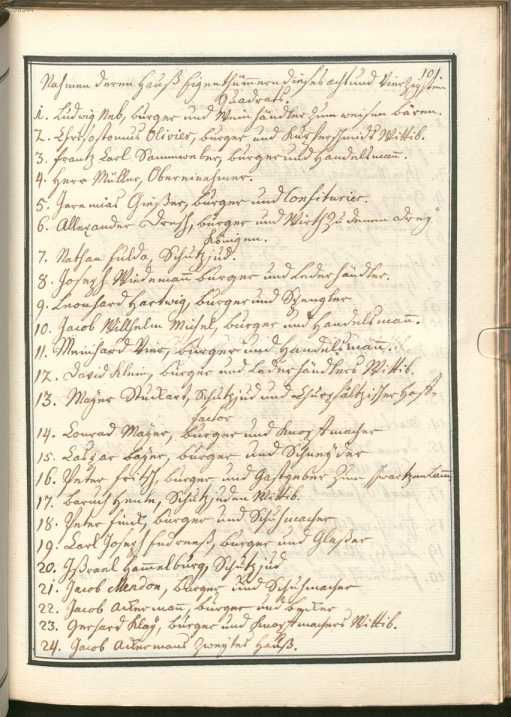 101.
Nahmen deren Hauß Eigenthümmern dieses acht und Vierzigsten
Quadrats.
1. Ludwig Neb, burger und Weinhändler zum weisen bären.
2. Chrisostomus Olivier, burger und Kupferschmidts Wittib.
3. Frantz Carl Sammweber, burger und Handelsmann.
4. Herr Müller, Obereinnehmer.
5. Jeremias Greßer, burger und Confiturier.
6. Allexander Dresch, burger und Wirth zu denen dreÿ
Königen.
7. Nathan Fulda, Schutz jud.
8. Joseph Wiedemann burger und Lederhändler.
9. Leonhard Hartwig, burger und Spengler
10. Jacob Willhelm Misel, burger und Handelsmann.
11. Meinhard Vier, burger und Handelsmann.
12. David Klein, burger und Lederhändlers Wittib.
13. Maÿer Stuckart, Schutz jud und Churpfältzischer Hoff-
factor
14. Conrad Maÿer, burger und Knopfmacher
15. Caspar Baÿer, burger und Schneÿder
16. Peter Fritsch, burger und Gastgeber zum schwartzen Lamm
17. Schutz juden Wittib.
18. Peter burger und Schuhmacher
19. Carl Joseph burger und Glaßer
20. Ißrael Hammelburg, Schutz jud
21. Jacob burger und Schuhmacher
22. Jacob Ackermann, burger und becker
23. Gerhard Klaÿ, burger und Knopfmachers Wittib.
24. Jacob Ackermans zweÿtes Hauß.